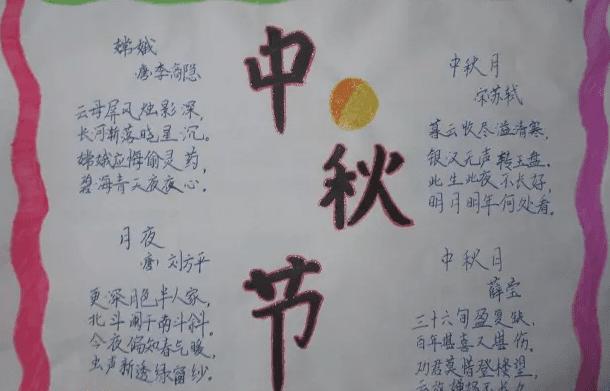 中
秋
节
嫦娥
(唐)李商隐
云母屏风烛影深,
长河渐落晓星沉。
嫦娥应悔偷灵药,
碧海青天夜夜心。
月夜
(唐)刘方平
更深月色半人家,
北斗阑干南斗斜。
今夜偏知春气暖,
虫声新透绿窗纱。
中秋月
宋苏轼
暮云收尽溢清寒,
银汉无声转玉盘。
此生此夜不长好,
明月明年何处看。
中秋月
薛莹
三十六旬盈复缺,
百年堪喜又堪伤。
劝君莫惜登楼望,